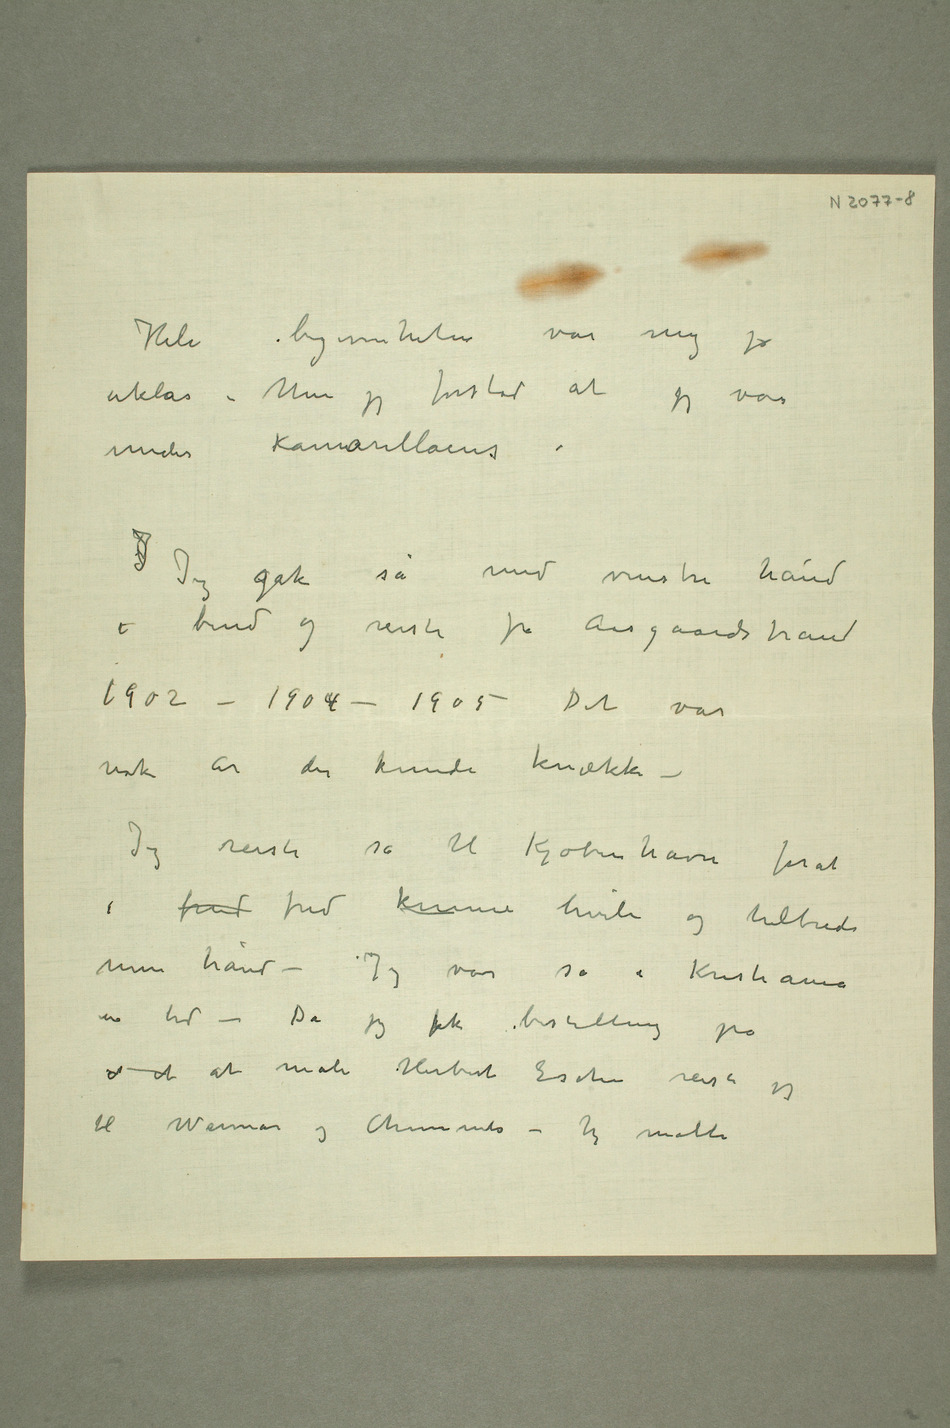 N 2077-8
Hele begivenheten var mig jo
uklar – Men jeg forstod at jeg var
under Kamarillaens
Jeg gik så med venstre hånd
i bind og reiste fra Aasgaardstrand
1902 – 1904 – 1905 Det var
nok år der kunde knække –
Jeg reiste så til Kjøbenhavn forat
i fred fred kunne hvile og helbrede
min hånd – Jeg var så i Kristiania
en tid – Da jeg fik bestilling på
at male Herbert Esche reiste jeg
til Weimar og Chemnitz – Jeg malte